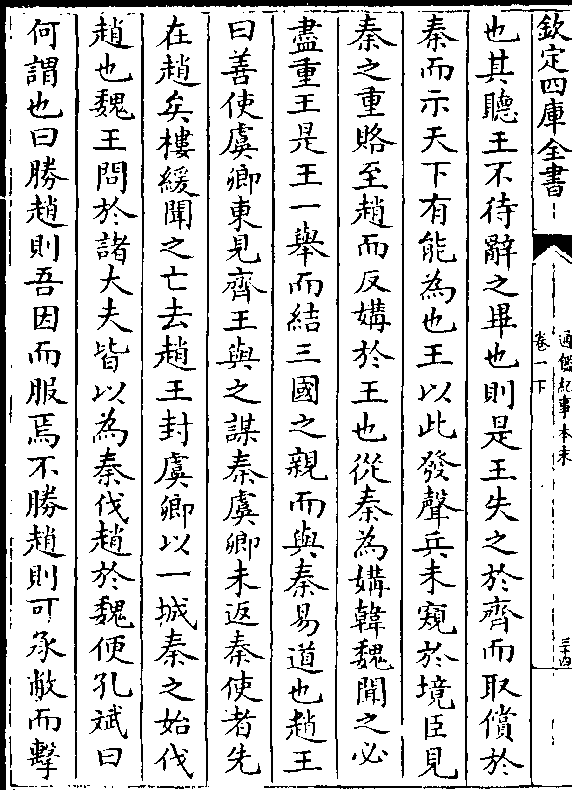 欽定四庫全書
通鑑紀事本末
卷一下
三十四
也其聽王不待辭之畢也則是王失之於齊而取償於
秦而示天下有能為也王以此發聲兵未窺於境臣見
秦之重賂至趙而反媾於王也從秦為媾韓魏聞之必
盡重王是王一舉而結三國之親而與秦易道也趙王
曰善使虞卿東見齊王與之謀秦虞卿未返秦使者先
在趙矣樓緩聞之亡去趙王封虞卿以一城秦之始伐
趙也魏王問於諸大夫皆以為秦伐趙於魏便孔斌曰
何謂也曰勝趙則吾因而服焉不勝趙則可承敝而擊